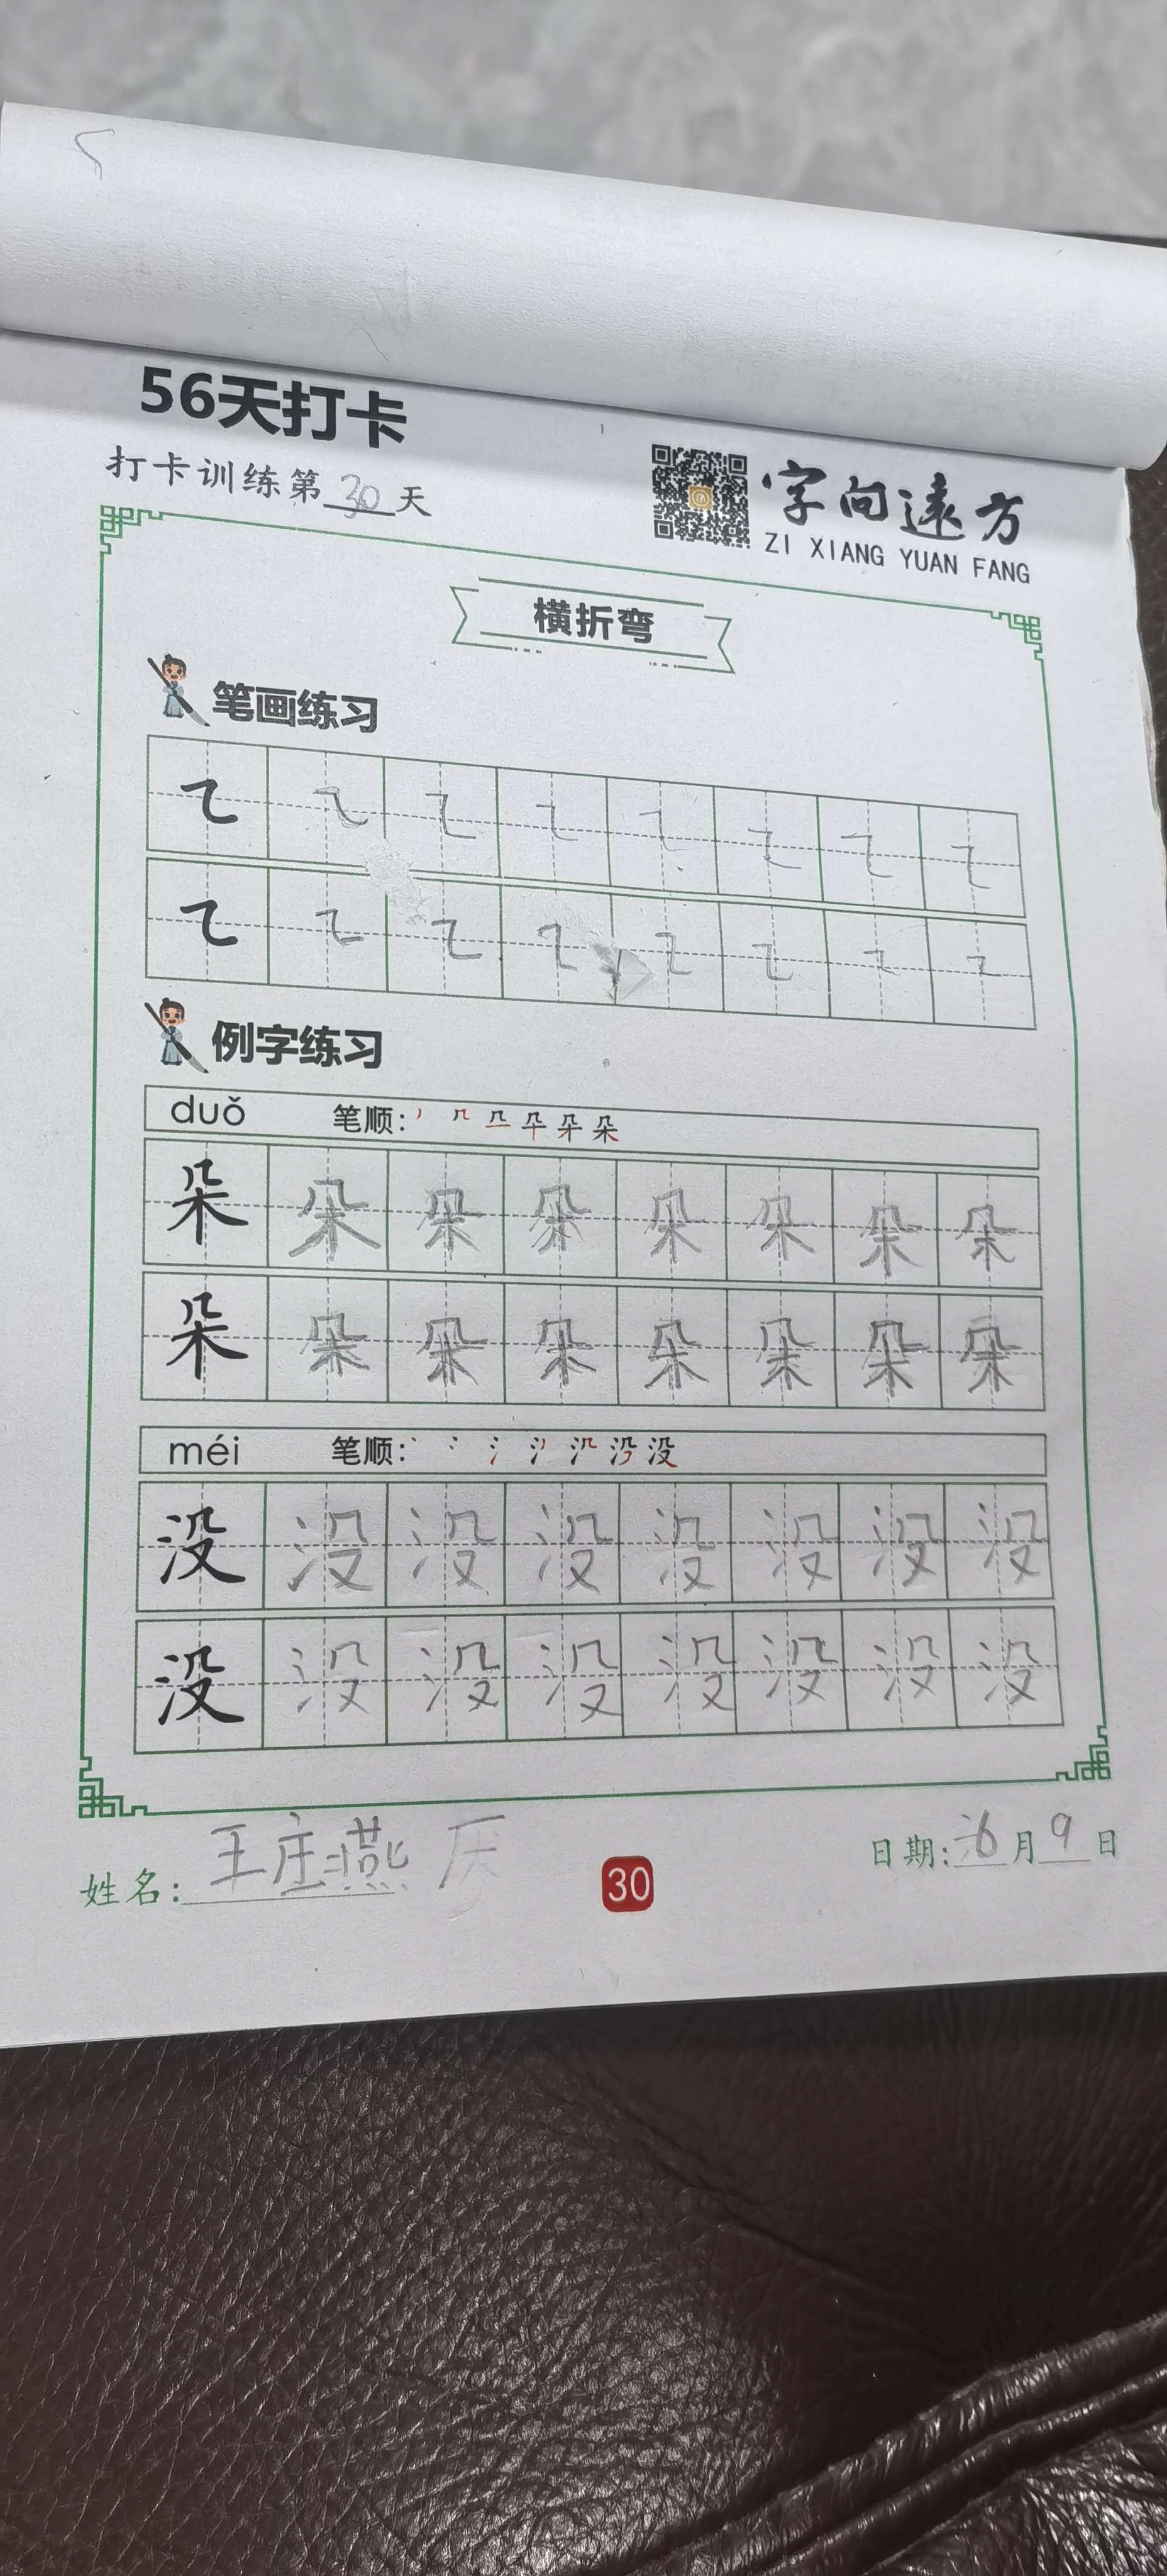 56天打卡
打卡训练第30天
字向远方
ZI XIANG YUAN FANG
横折弯
笔画练习
㇍ ㇍ ㇍ ㇍ ㇍ ㇍ ㇍ ㇍
㇍ ㇍ ㇍ ㇍ ㇍ ㇍ ㇍ ㇍
例字练习
duǒ 笔顺:
朵 朵 朵 朵 朵 朵 朵 朵
朵 朵 朵 朵 朵 朵 朵 朵
méi 笔顺:
没 没 没 没 没 没 没 没
没 没 没 没 没 没 没 没
姓名: 王庄
30
日期: 6月9日